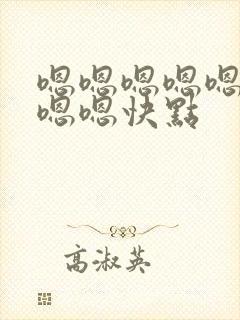 嗯嗯嗯嗯嗯
嗯嗯快點
高淑英